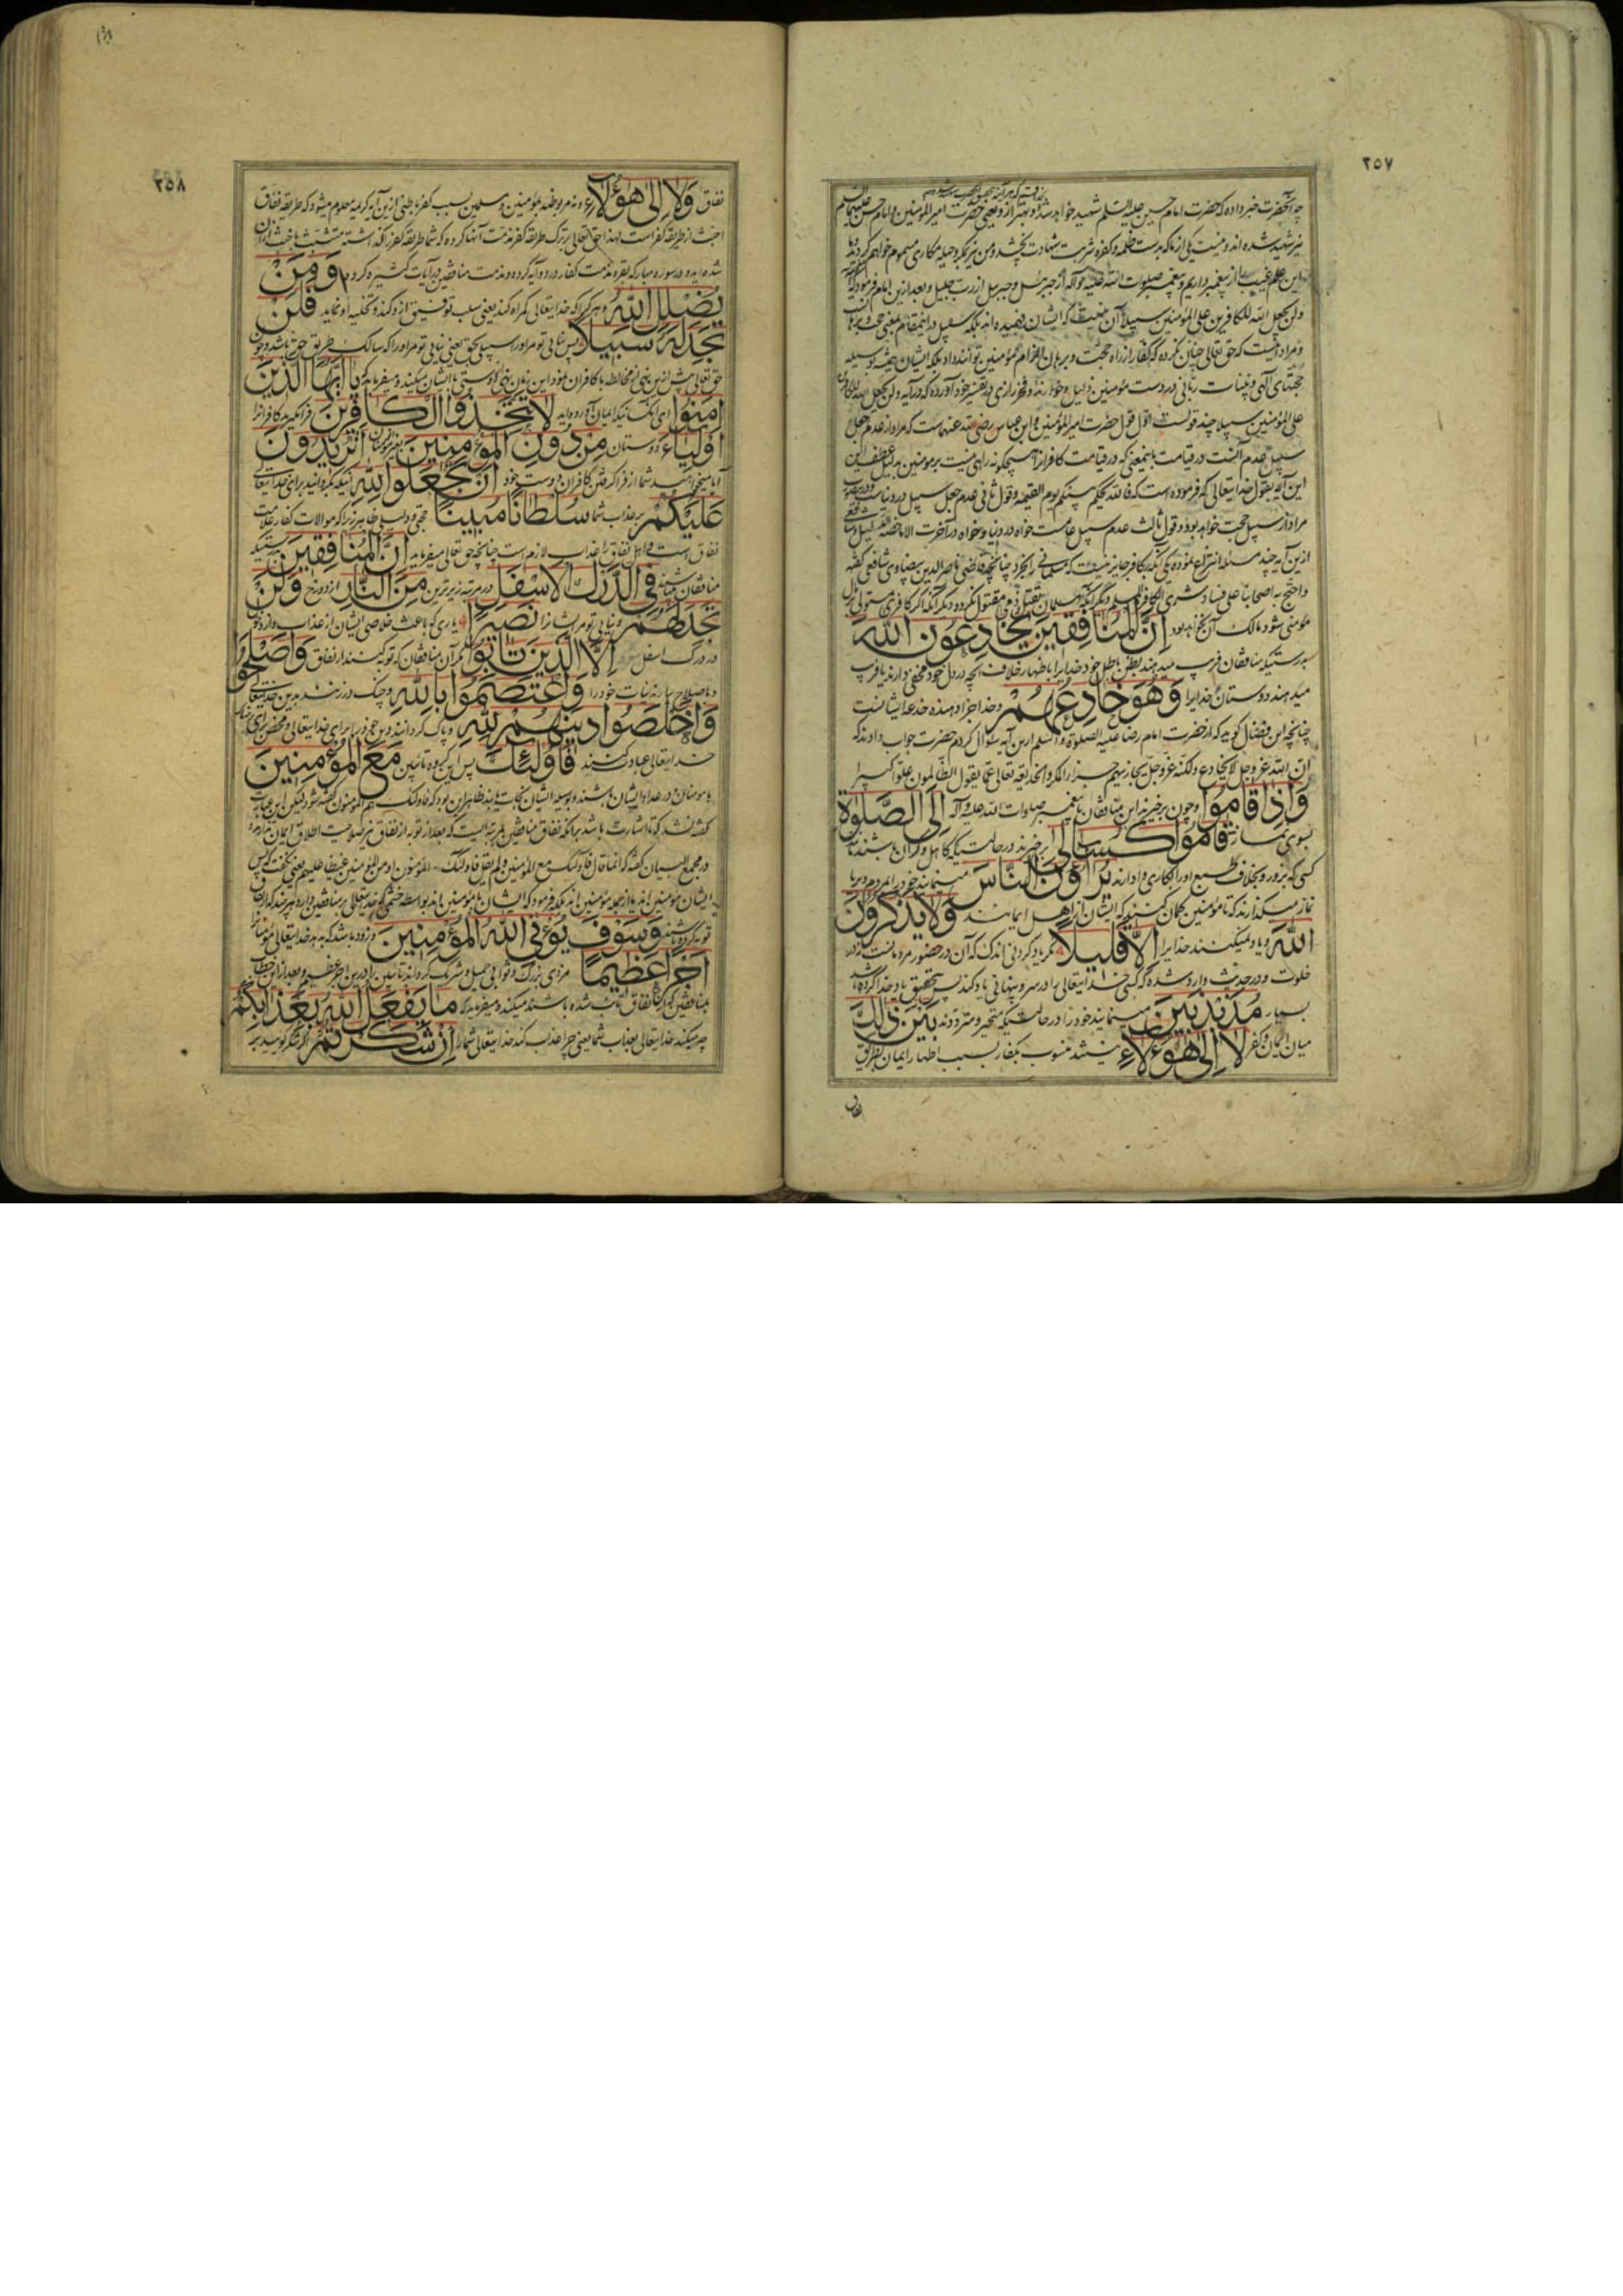 ٢٥٧
چه آنحضرت خبر داده که حضرت امام حسین علیه السلم شهید خواهد شد و بهتر از و یعنی حضرت امیر المؤمنین و امام حسن علیهما السلم
نیز شهید شده اند و نیست یکی از ما که بدست ظلمه و کفره شربت شهادت نچشد و من نیز بمکر و حیله مکاری مسموم خواهم کردید و ما
این علم غیب را از پیغمبر داریم و پیغمبر صلوات الله علیه و آله از جبرئیل و جبرئیل از رب جلیل و بعد ازین امام فرمود که آیه
ولن یجعل الله للکافرین علی المؤمنین سبیلا آن نیست که ایشان فهمیده اند بلکه سبیل در اینمقام بمعنی حجت و برهان است
و مراد اینست که حق تعالی چنان نکرده که کفار از راه حجت و برهان الزام مؤمنین توانند داد بلکه ایشان همیشه بوسیله
حجتهای الهی و بینات ربانی در دست مؤمنین ذلیل و خوارند و فخر رازی در تفسیر خود آورده که در آیه ولن یجعل الله للکافرین
علی المؤمنین سبیلا چند قولست اول قول حضرت امیر المؤمنین و ابن عباس رضی الله عنهماست که مراد از عدم جعل
سبیل عدم آنست در قیامت باینمعنی که در قیامت کافرانرا هیچگونه راهی نیست بر مومنین بدلیل عطف این
این آیه بقول خدایتعالی که فرموده است که فالله یحکم بینکم یوم القیمة و قول ثانی عدم جعل سبیل در دنیاست و درینصورت
مراد از سبیل حجت خواهد بود و قول ثالث عدم سبیل عامست خواه در دنیا و خواه در آخرت الا ما خصه الدلیل و شافعی
ازین آیه چند مسئله انتزاع نموده یکی آنکه کافر جایز نیست که مسلمانی را بخرد چنانچه قاضی ناصر الدین بیضاوی شافعی گفته
واحتج به اصحابنا علی فساد شری الکافر المسلم و دیگر آنکه مسلمان بقتل ذمی مقتول نکردد و دیگر آنکه اگر کافری مستولی بر مال
مؤمنی شود مالک آن نخواهد بود اِنَّ الْمُنَافِقِینَ یُخَادِعُونَ اللّٰهَ
بدرستیکه منافقان فریب میدهند بظن باطل خود خدایرا باظهار خلاف آنچه در دل خود مخفی دارند یا فریب
میدهند دوستان خدایرا وَهُوَ خَادِعُهُمْ و خدا جزا دهنده خدعه ایشانست
چنانچه ابن فضال گوید که از حضرت امام رضا علیه الصلوة والسلم ازین آیه سؤال کردم حضرت جواب دادند که
ان الله عز وجل لا یخادع ولکنه عز وجل یجازیهم جزاء المکر والخدیعة تعالی عما یقول الظالمون علوا کبیرا
وَاِذَا قَامُوا و چون برخیزند این منافقان با پیغمبر صلوات الله علیه و آله اِلَی الصَّلٰوةِ
بسوی نماز قَامُوا کُسَالٰی برخیزند در حالتیکه کاهل و گران باشند مانند
کسی که بزور و بخلاف طبع او را بکاری وادارند یُرَاؤُنَ النَّاسَ مینمایند خود را بمردم و بریا
نماز میگذارند که تا مؤمنین گمان کنند که ایشان از اهل ایمانند وَلَا یَذْکُرُونَ
اللّٰهَ و یاد نمیکنند خدایرا اِلَّا قَلِیلًا مگر یاد کردنی اندک که آن در حضور مردمانست نه در
خلوت و در حدیث وارد شده که کسی خدایتعالی را در سر و پنهانی یاد کند پس بتحقیق یاد خدا کرده باشد
بسیار مُذَبْذَبِینَ مینمایند خود را در حالتیکه متحیر و مترددند بَیْنَ ذٰلِکَ
میان ایمان و کفر لَا اِلٰی هٰؤُلَاءِ نیستند منسوب بکفار بسبب اظهار ایمان بطریق
نفاق
٢٥٨
نفاق وَلَا اِلٰی هٰؤُلَاءِ و نه مر وطند بمؤمنین و مسلمین بسبب کفر باطنی ازین آیه کریمه معلوم میشود که طریقه نفاق
اخبث از طریقه کفر است لهذا حق تعالی بر ترک طریقه کفر مذمت آنها کرده که شما طریقه کفر را گذاشته متشبث باخبث از آن
شده اید و در سوره مبارکه بقره مذمت کفار در دو آیه کرده و مذمت منافقین در آیات کثیره کرده وَمَنْ
یُضْلِلِ اللّٰهُ و هر کرا که خدایتعالی گمراه کند یعنی سلب توفیق ازو کند و تخلیه او نماید فَلَنْ
تَجِدَ لَهُ سَبِیلًا پس نیابی تو مر او را سبیلی بحق یعنی نیابی تو مر او را که سالک طریق حق باشد و چون
حق تعالی پیش ازین نهی از مخالطه با کافران نمود این زمان نهی از دوستی با ایشان میکند و میفرماید که یَا اَیُّهَا الَّذِینَ
اٰمَنُوا ای آنکسانیکه ایمان آورده اید لَا تَتَّخِذُوا الْکَافِرِینَ فرا مگیرید کافرانرا
اَوْلِیَاءَ دوستان مِنْ دُونِ الْمُؤْمِنِینَ بغیر مؤمنان اَتُرِیدُونَ
آیا میخواهید شما از فرا گرفتن کافران دوست خود اَنْ تَجْعَلُوا لِلّٰهِ آنکه بگردانید برای خدایتعالی
عَلَیْکُمْ بر عذاب شما سُلْطَانًا مُبِینًا حجتی و دلیلی ظاهر زیرا که موالات کفار علامت
نفاق است و اهل نفاق را عذاب لازم است چنانچه حق تعالی میفرماید اِنَّ الْمُنَافِقِینَ بدرستیکه
منافقان باشند فِی الدَّرْکِ الْاَسْفَلِ در مرتبه زیرترین مِنَ النَّارِ از دوزخ وَلَنْ
تَجِدَ لَهُمْ و نیابی تو مر ایشانرا نَصِیرًا یاری که باعث خلاصی ایشان از عذاب وارده
در درک اسفل اِلَّا الَّذِینَ تَابُوا مگر آن منافقان که توبه کنند از نفاق وَاَصْلَحُوا
و باصلاح بیارند نیات خود را وَاعْتَصَمُوا بِاللّٰهِ و چنگ در زنند بدین خدایتعالی
وَاَخْلَصُوا دِینَهُمْ لِلّٰهِ و پاک گردانند دین خود را برای خدایتعالی و محض برای رضای
خدایتعالی عبادت کنند فَاُولٰئِکَ پس این گروه تائبین مَعَ الْمُؤْمِنِینَ
با مومنان در عداد ایشان باشند و بوسیله ایشان نجات یابند ظاهر این بود که فاولئک هم المؤمنون گفته شود لیکن این عبارت
گفته نشد که تا اشارت باشد بر آنکه نفاق منافقین بمرتبه ایست که بعد از توبه از نفاق نیز صلاحیت اطلاق ایمان ندارد و
در مجمع البیان گفته که انما قال فاولئک مع المؤمنین ولم یقل فاولئک المؤمنون او من المؤمنین غیظا علیهم یعنی نگفت که پس
ایشان مؤمنین اند یا از جمله مؤمنین اند بلکه فرمود که ایشان با مؤمنین اند بواسطه خشمی که خدایتعالی بر منافقین دارد هر چند که از نفاق
توبه کرده باشند وَسَوْفَ یُؤْتِی اللّٰهُ الْمُؤْمِنِینَ و زود باشد که بدهد خدایتعالی مؤمنانرا
اَجْرًا عَظِیمًا مزدی بزرگ و ثوابی جمیل و شریک گرداند تائبین را در این اجر عظیم و بعد ازین خطاب
بمنافقین که از نفاق تائب شده باشند میکند و میفرماید که مَا یَفْعَلُ اللّٰهُ بِعَذَابِکُمْ
چه میکند خدایتعالی بعذاب شما یعنی چرا عذاب کند خدایتعالی شما را اِنْ شَکَرْتُمْ اگر شکر گویید بر